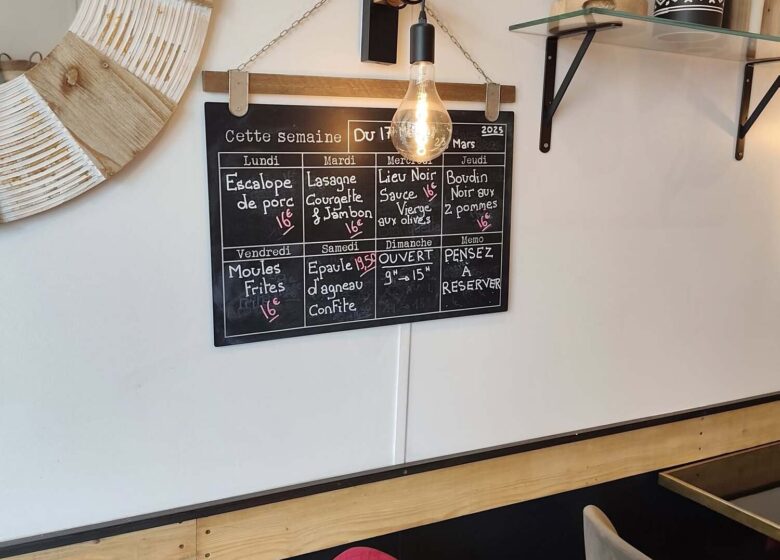 Cette semaine Du 17 23 Mars 2025
Lundi
Escalope
de porc
16€
Mardi
Lasagne
Courgette
& Jambon
16€
Mercredi
Lieu Noir
Sauce 16€
Vierge
aux olives
Jeudi
Boudin
Noir aux
2 pommes
16€
Vendredi
Moules
Frites
16€
Samedi
Epaule 19,50
d'agneau
Confite
Dimanche
OUVERT
9H → 15H
Memo
PENSEZ
À
RESERVER